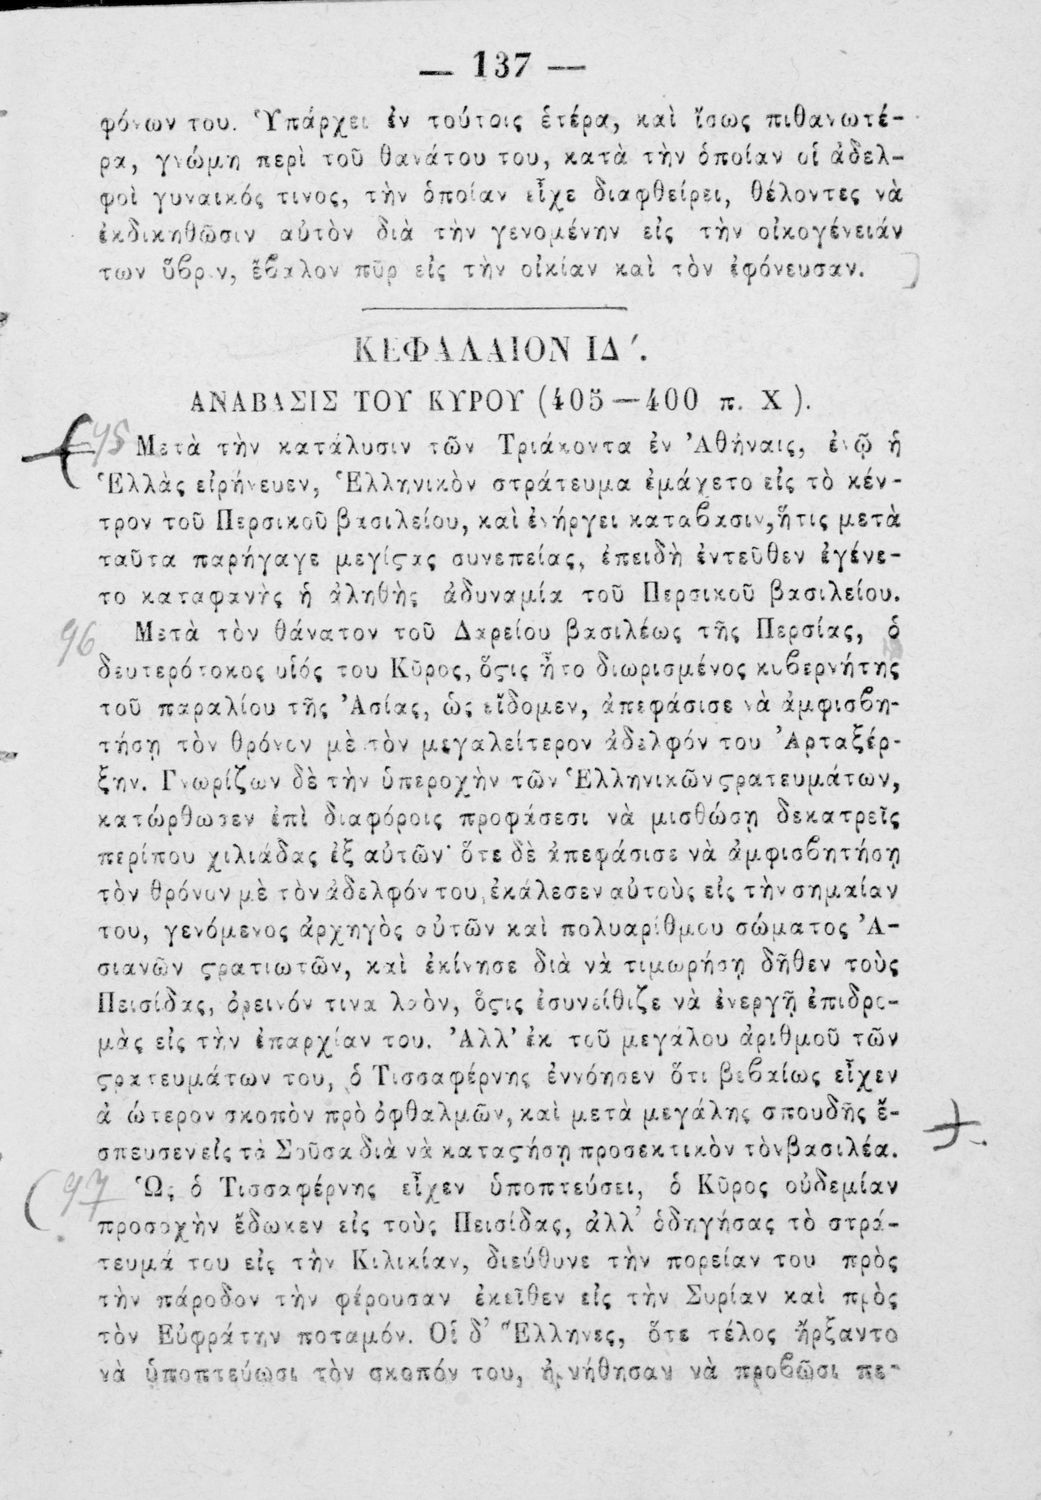 — 137 —
φόνων του. Ὑπάρχει ἐν τούτοις ἑτέρα, καὶ ἴσως πιθανωτέ-
ρα, γνώμη περὶ τοῦ θανάτου του, κατὰ τὴν ὁποίαν οἱ ἀδελ-
φοὶ γυναικός τινος, τὴν ὁποίαν εἶχε διαφθείρει, θέλοντες νὰ
ἐκδικηθῶσιν αὐτὸν διὰ τὴν γενομένην εἰς τὴν οἰκογένειάν
των ὕβριν, ἔβαλον πῦρ εἰς τὴν οἰκίαν καὶ τὸν ἐφόνευσαν.
ΚΕΦΑΛΑΙΟΝ ΙΔ´.
ΑΝΑΒΑΣΙΣ ΤΟΥ ΚΥΡΟΥ (405—400 π. Χ).
95 Μετὰ τὴν κατάλυσιν τῶν Τριάκοντα ἐν Ἀθήναις, ἐνῷ ἡ
Ἑλλὰς εἰρήνευεν, Ἑλληνικὸν στράτευμα ἐμάχετο εἰς τὸ κέν-
τρον τοῦ Περσικοῦ βασιλείου, καὶ ἐνήργει κατάβασιν, ἥτις μετὰ
ταῦτα παρήγαγε μεγίϛας συνεπείας, ἐπειδὴ ἐντεῦθεν ἐγένε-
το καταφανὴς ἡ ἀληθὴς ἀδυναμία τοῦ Περσικοῦ βασιλείου.
96 Μετὰ τὸν θάνατον τοῦ Δαρείου βασιλέως τῆς Περσίας, ὁ
δευτερότοκος υἱός του Κῦρος, ὅϛις ἦτο διωρισμένος κυβερνήτης
τοῦ παραλίου τῆς Ἀσίας, ὡς εἴδομεν, ἀπεφάσισε νὰ ἀμφισβη-
τήσῃ τὸν θρόνον μὲ τὸν μεγαλείτερον ἀδελφόν του Ἀρταξέρ-
ξην. Γνωρίζων δὲ τὴν ὑπεροχὴν τῶν Ἑλληνικῶν ϛρατευμάτων,
κατώρθωσεν ἐπὶ διαφόροις προφάσεσι νὰ μισθώσῃ δεκατρεῖς
περίπου χιλιάδας ἐξ αὐτῶν· ὅτε δὲ ἀπεφάσισε νὰ ἀμφισβητήσῃ
τὸν θρόνον μὲ τὸν ἀδελφόν του, ἐκάλεσεν αὐτοὺς εἰς τὴν σημαίαν
του, γενόμενος ἀρχηγὸς αὐτῶν καὶ πολυαρίθμου σώματος Ἀ-
σιανῶν ϛρατιωτῶν, καὶ ἐκίνησε διὰ νὰ τιμωρήσῃ δῆθεν τοὺς
Πεισίδας, ὀρεινόν τινα λαὸν, ὅϛις ἐσυνείθιζε νὰ ἐνεργῇ ἐπιδρο-
μὰς εἰς τὴν ἐπαρχίαν του. Ἀλλ' ἐκ τοῦ μεγάλου ἀριθμοῦ τῶν
ϛρατευμάτων του, ὁ Τισσαφέρνης ἐννόησεν ὅτι βεβαίως εἶχεν
ἀ ώτερον σκοπὸν πρὸ ὀφθαλμῶν, καὶ μετὰ μεγάλης σπουδῆς ἔ-
σπευσεν εἰς τὰ Σοῦσα διὰ νὰ καταϛήσῃ προσεκτικὸν τὸν βασιλέα.
97 Ὡς ὁ Τισσαφέρνης εἶχεν ὑποπτεύσει, ὁ Κῦρος οὐδεμίαν
προσοχὴν ἔδωκεν εἰς τοὺς Πεισίδας, ἀλλ' ὁδηγήσας τὸ στρά-
τευμά του εἰς τὴν Κιλικίαν, διεύθυνε τὴν πορείαν του πρὸς
τὴν πάροδον τὴν φέρουσαν ἐκεῖθεν εἰς τὴν Συρίαν καὶ πρὸς
τὸν Εὐφράτην ποταμόν. Οἱ δ' Ἕλληνες, ὅτε τέλος ἤρξαντο
νὰ ὑποπτεύωσι τὸν σκοπόν του, ἠρνήθησαν νὰ προβῶσι πε-